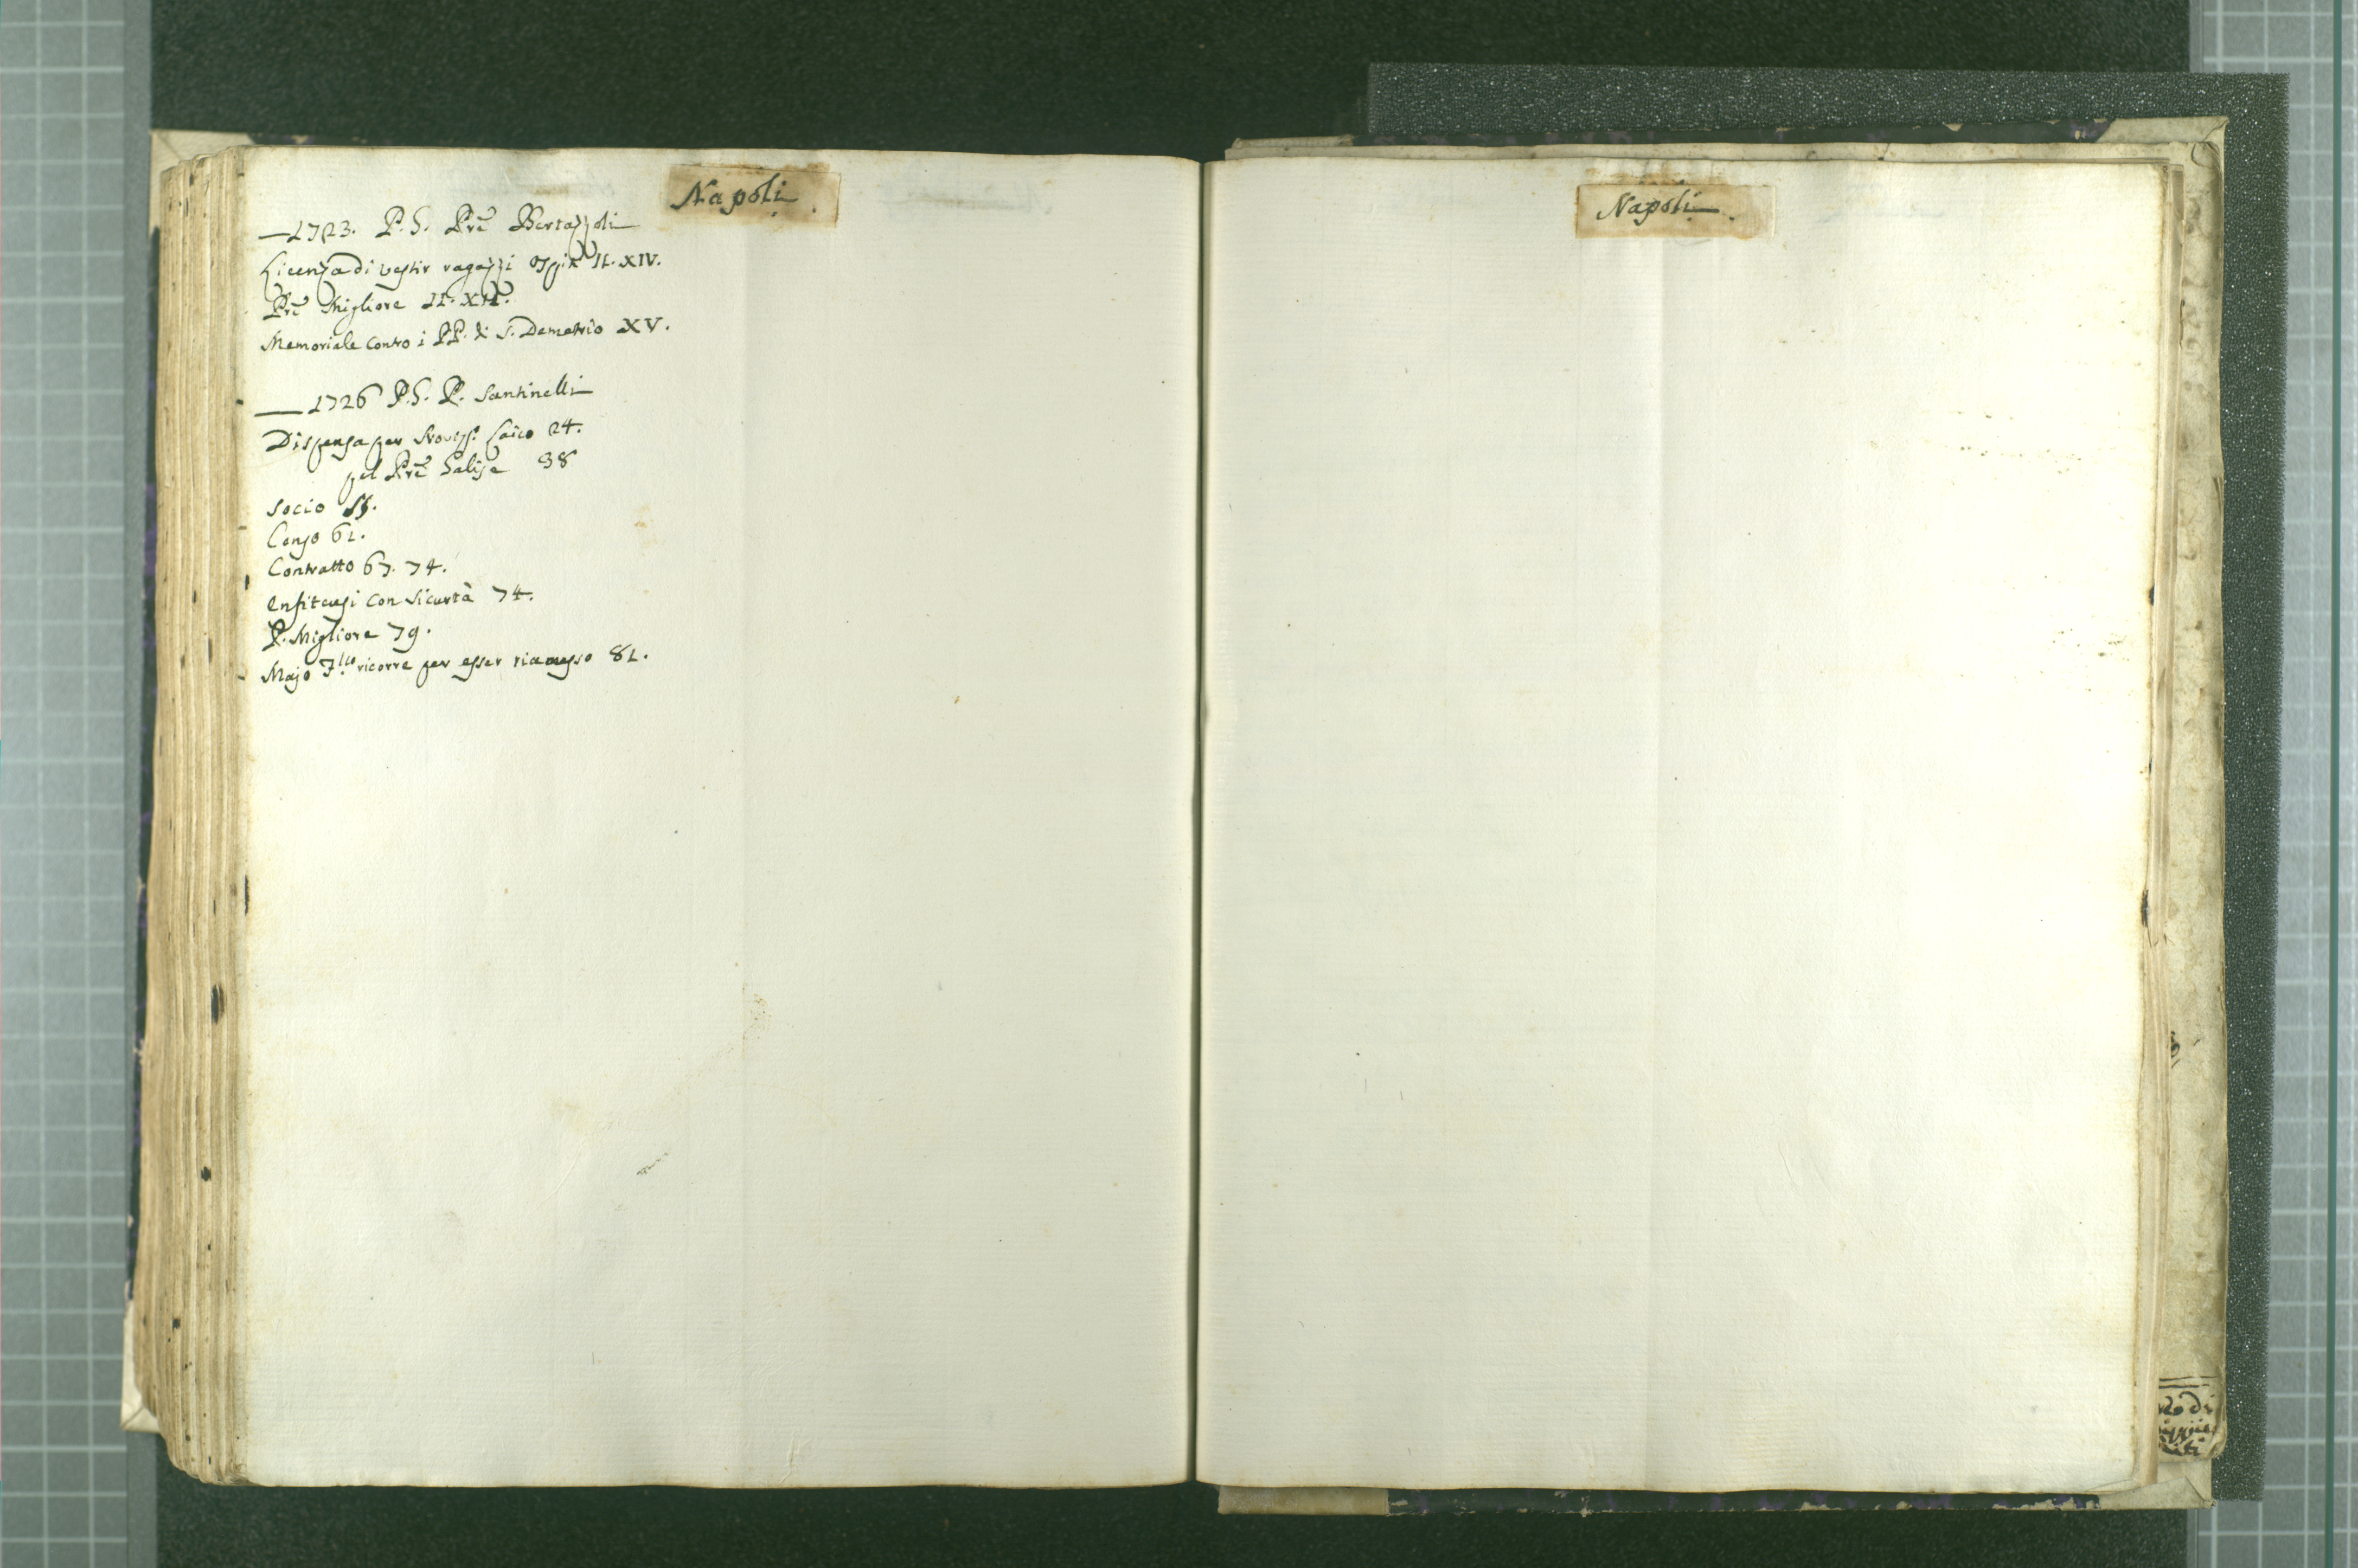 Napoli.
—1723. P. G. Prē Bertazzoli
Licenza di vestir ragazzi II. XIV.
Prē Migliore II. XII.
Memoriale contro i PP. di S. Demetrio XV.
—1726 P. G. P. Santinelli
Dispensa per Laico 24.
pel Prē 38
Socio
Censo 61.
Contratto 67. 74.
Enfiteusi con sicurtà 74.
P. Migliore 79.
Majo ricorre per esser riamesso 81.
Napoli.